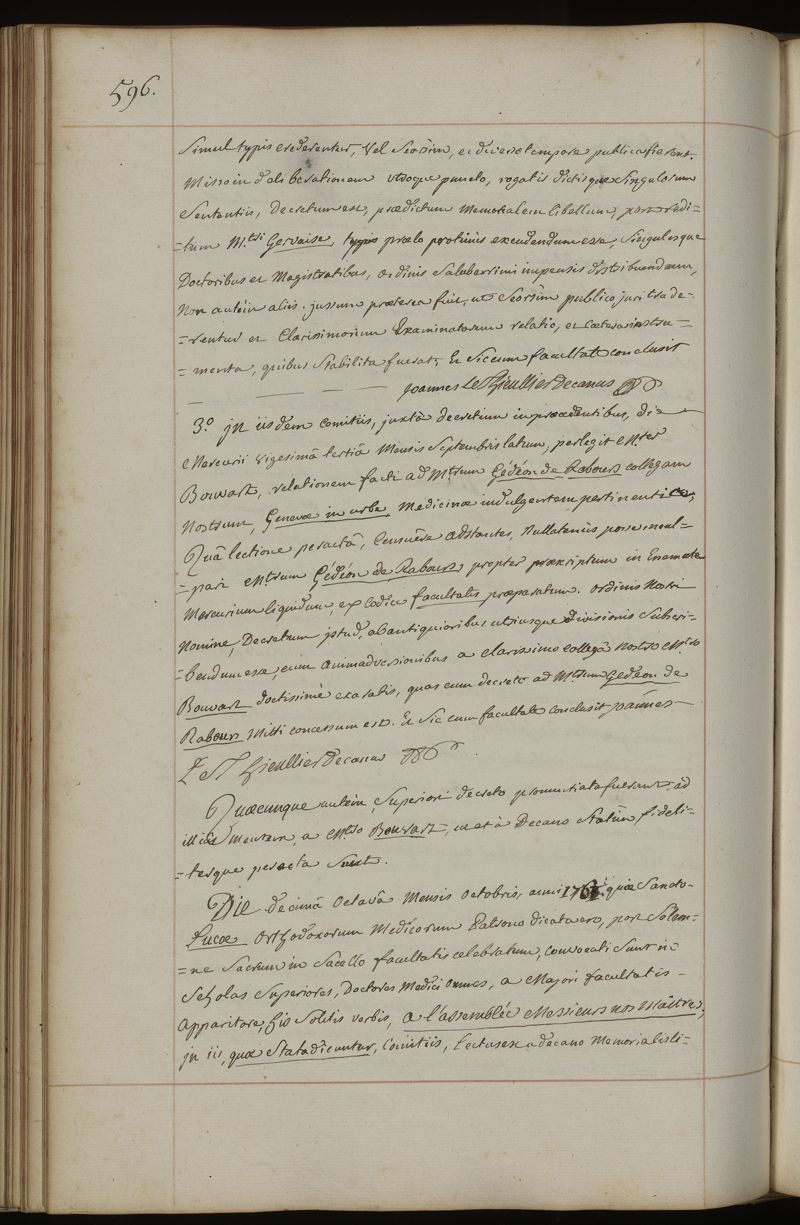 596.
Simul typis ederentur, vel Seorsim, et diverso tempore publica fierent.
Misso in deliberationem utroque puncto, rogatis dictisque Singulorum
Sententiis, Decretum est, praedictum Memorialem libellum, post redi-
=tum M.tri Gervaise, typis praelo protinus excudendum esse, Singulisque
Doctoribus et Magistratibus, Ordinis Saluberrimi impensis distribuendum,
Non autem aliis. jussum praeterea fuit, ut Seorsim publico juri trade-
=rentur et Clarissimorum Examinatorum relatio, et Caetera instru-
=menta, quibus Stabilita fuerat; Et Sic cum facultate conclusit
Joannes Le Thieullier Decanus
3.º jn iisdem Comitiis, juxtà decretum in praecedentibus, die
Mercurii vigesimâ tertiâ Mensis Septembris latum, perlegit M.ter
Bouvart, relationem facti ad M.trum Gédéon de Rabours collegam
Nostrum, Genevae in urbe, Medicinae indulgentem pertinentis;
Quâ lectione peractâ, Censuêre adstantes, Nullatenus posse incul-
=pari M.trum Gédéon de Rabours, propter praescriptum in Enemate
Mercurium liquidum, ex Codice facultatis praeparatum. Ordinis Nostri
Nomine, Decretum jstud, ab antiquioribus utriusque divisionis Subscri-
=bendum esse, cum animadversionibus a clarissimo collegâ nostro M.tro
Bouvart doctissimè exaratis, quas cum decreto ad M.trum Gedéon de
Rabours Mitti concessum est. Et Sic cum facultate conclusit Joannes
Le Thieullier Decanus
Quaecunque autem, Superiori decreto pronuntiata fuerant, ad
illius mentem, a M.tro Bouvart, et à Decano Statim fideli-
=terque peracta Sunt.
Die decimâ Octavâ Mensis Octobris, anni 1761. quae Sancto
Lucae Orthodoxorum Medicorum Patrono dicata est, post Solem-
=ne Sacrum in Sacello facultatis celebratum, convocati Sunt in
Scholas Superiores, Doctores Medici Omnes, a Majori facultatis
Apparitore, his Solitis verbis, a l'assemblée Messieurs nos Maitres;
jn iis, quae Stata dicuntur, Comitiis, Lectus est a decano Memorialis li-